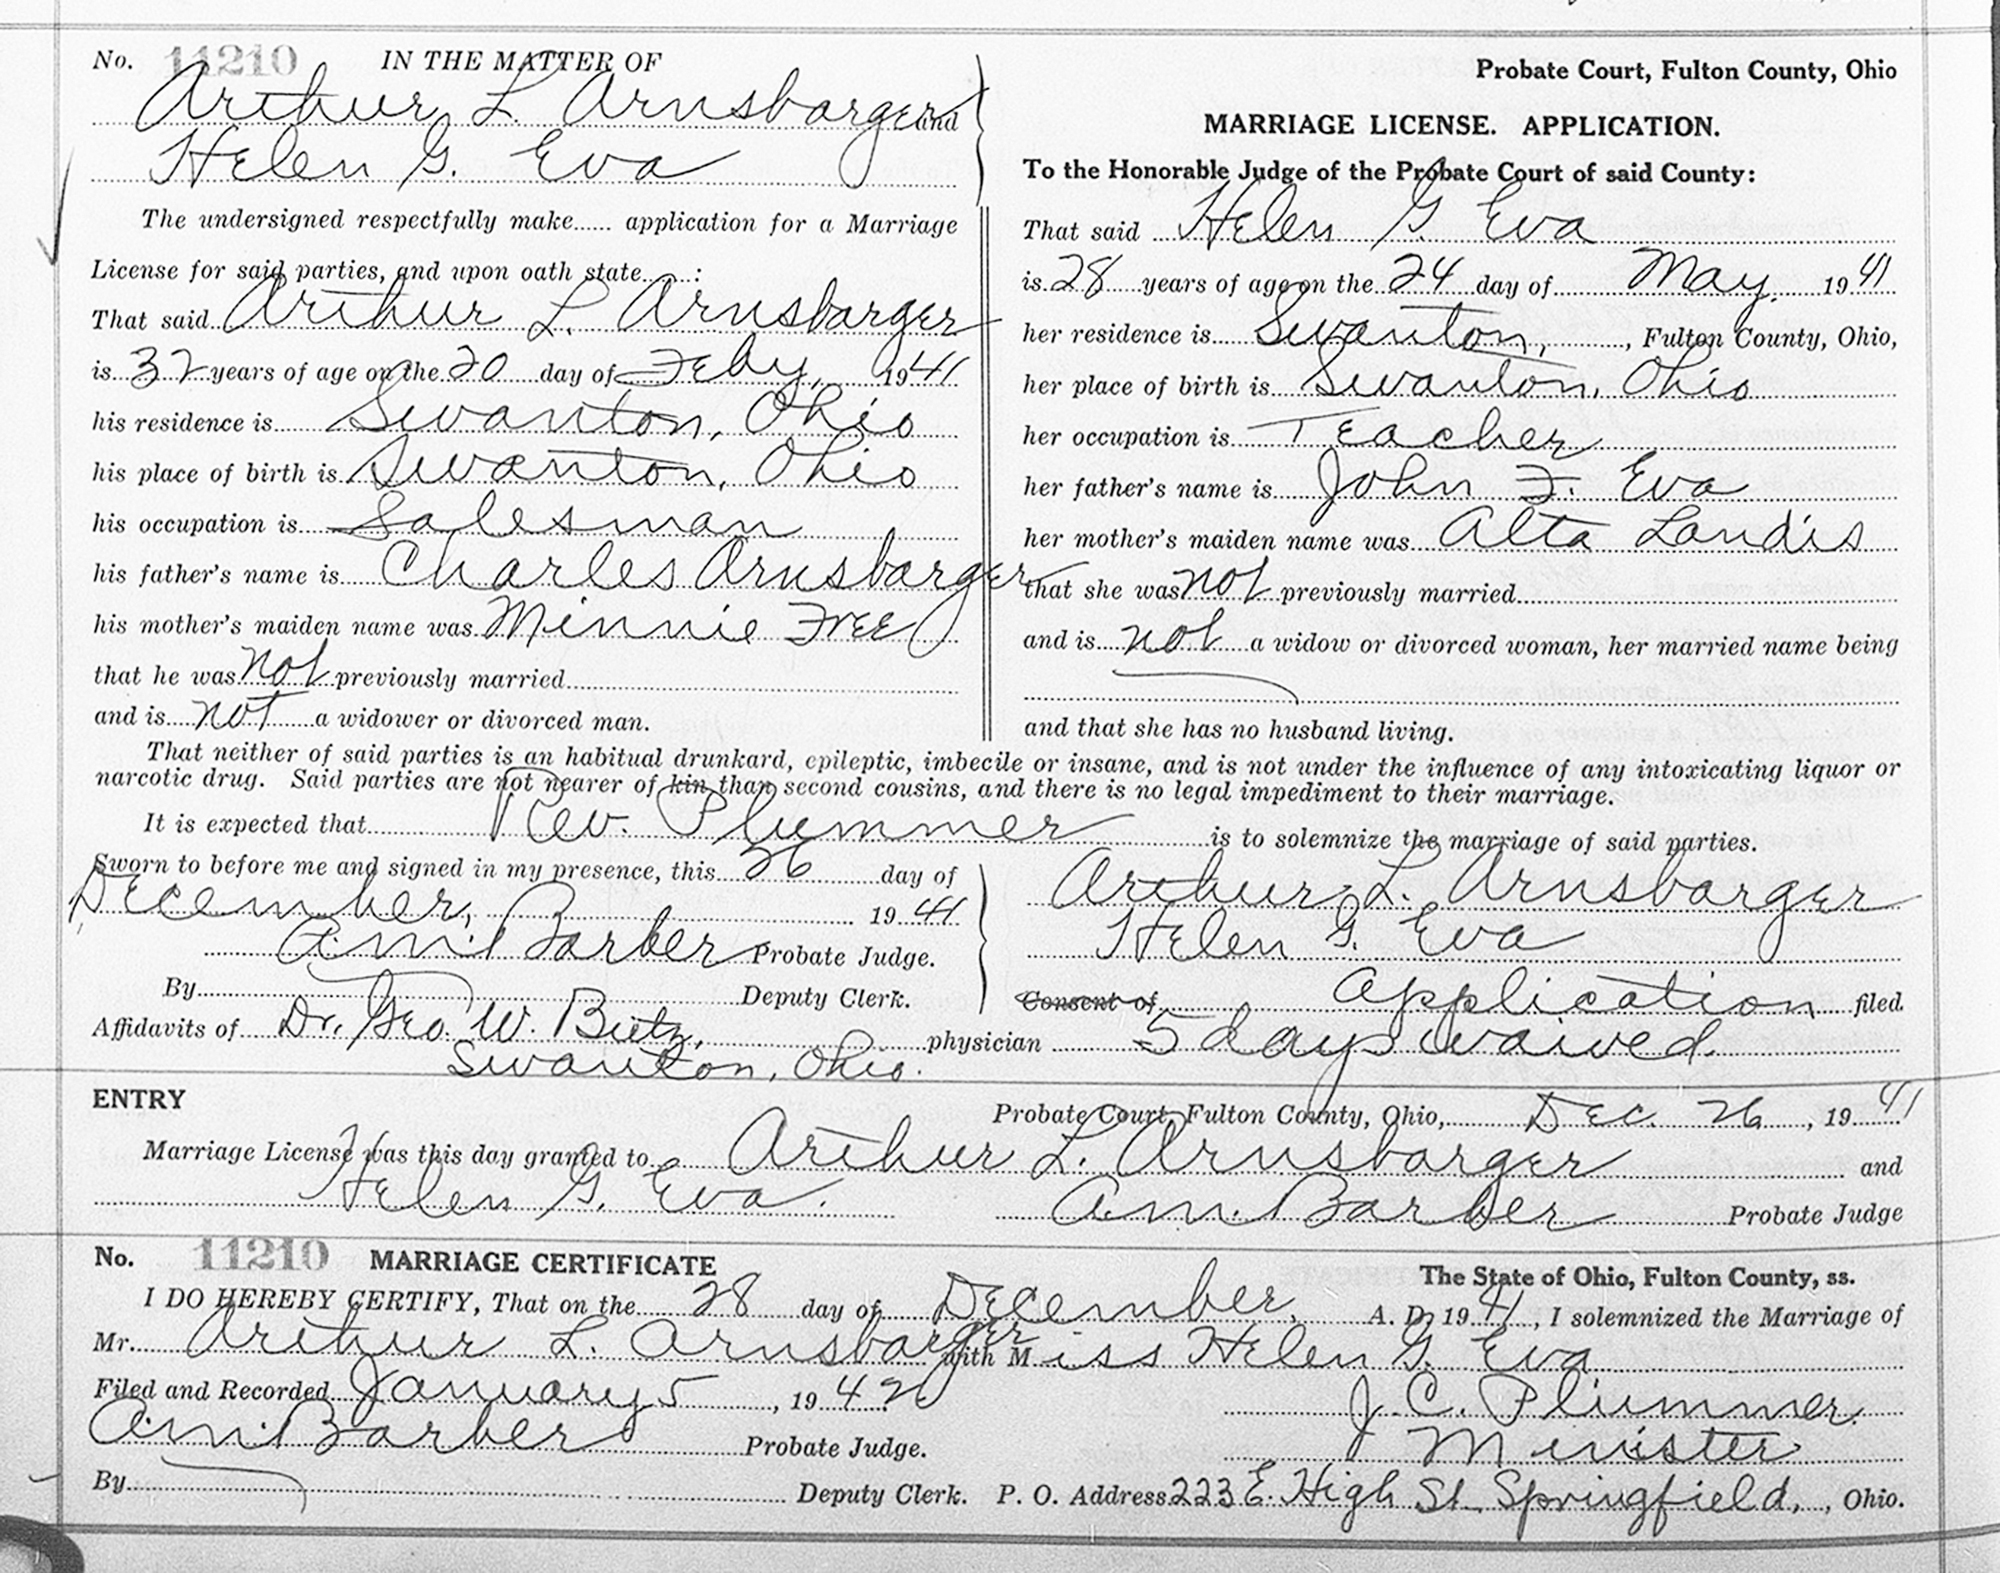 No. 11210 IN THE MATTER OF
Arthur L. Arnsbarger and
Helen G. Eva
The undersigned respectfully make...... application for a Marriage
License for said parties, and upon oath state........:
That said Arthur L. Arnsbarger
is 32 years of age on the 20 day of Feby, 1941
his residence is Swanton, Ohio
his place of birth is Swanton, Ohio
his occupation is Salesman
his father's name is Charles Arnsbarger
his mother's maiden name was Minnie Free
that he was not previously married
and is not a widower or divorced man.
Probate Court, Fulton County, Ohio
MARRIAGE LICENSE. APPLICATION.
To the Honorable Judge of the Probate Court of said County:
That said Helen G. Eva
is 28 years of age on the 24 day of May, 1941
her residence is Swanton, , Fulton County, Ohio,
her place of birth is Swanton, Ohio
her occupation is Teacher
her father's name is John F. Eva
her mother's maiden name was Alta Landis
that she was not previously married
and is not a widow or divorced woman, her married name being
and that she has no husband living.
That neither of said parties is an habitual drunkard, epileptic, imbecile or insane, and is not under the influence of any intoxicating liquor or
narcotic drug. Said parties are not nearer of kin than second cousins, and there is no legal impediment to their marriage.
It is expected that Rev. Plummer is to solemnize the marriage of said parties.
Sworn to before me and signed in my presence, this 26 day of
December, 1941
A.M. Barber Probate Judge.
By Deputy Clerk.
Arthur L. Arnsbarger
Helen G. Eva
Consent of Application filed.
Affidavits of Dr. Geo. W. Bietz, physician 5 days waived.
Swanton, Ohio.
ENTRY Probate Court, Fulton County, Ohio, Dec. 26, 1941
Marriage License was this day granted to Arthur L. Arnsbarger and
Helen G. Eva. A.M. Barber Probate Judge
No. 11210 MARRIAGE CERTIFICATE The State of Ohio, Fulton County, ss.
I DO HEREBY CERTIFY, That on the 28 day of December, A. D. 1941, I solemnized the Marriage of
Mr. Arthur L. Arnsbarger with Miss Helen G. Eva
Filed and Recorded January 5, 1942 J. C. Plummer
A.M. Barber Probate Judge. Minister
By Deputy Clerk. P. O. Address 223 E. High St. Springfield, , Ohio.